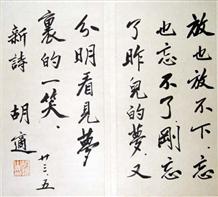 放也放不下、忘
也忘不了、剛忘
了昨兒的夢、又
分明看見夢
裏的一笑、
新詩
胡適
廿、三、五